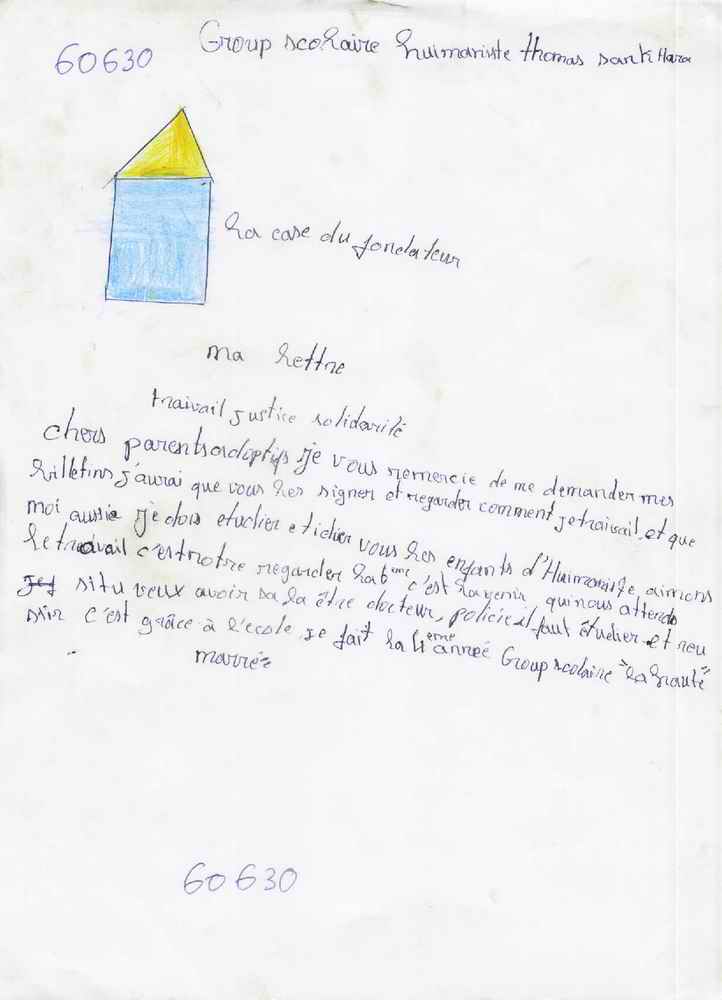 60630
Group scolaire huimariste thomas sank Hara
La case du fondateur
ma lettre
travail justice solidarité
chers parents adoptifs je vous remercie de me demander mes
billetins j'aurai que vous les signer et regarder comment je travail et que
moi aussie je dois etudier etidier vous les enfants d'Huimariste aimons
le travail c'est notre regarder la 6ème c'est l'avenir qui nous attends
si tu veux avoir sa la être docteur, policie il faut étudier et reu
ssir c'est grâce à l'ecole je fait la 4eme année Group scolaire "la
marrée
60630